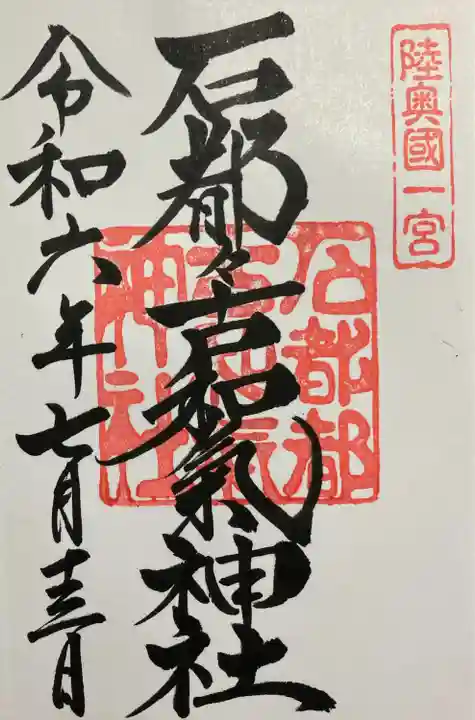 陸奥國一宮
石都々古和氣神社
石都都
古和氣
神社
令和六年七月十三日